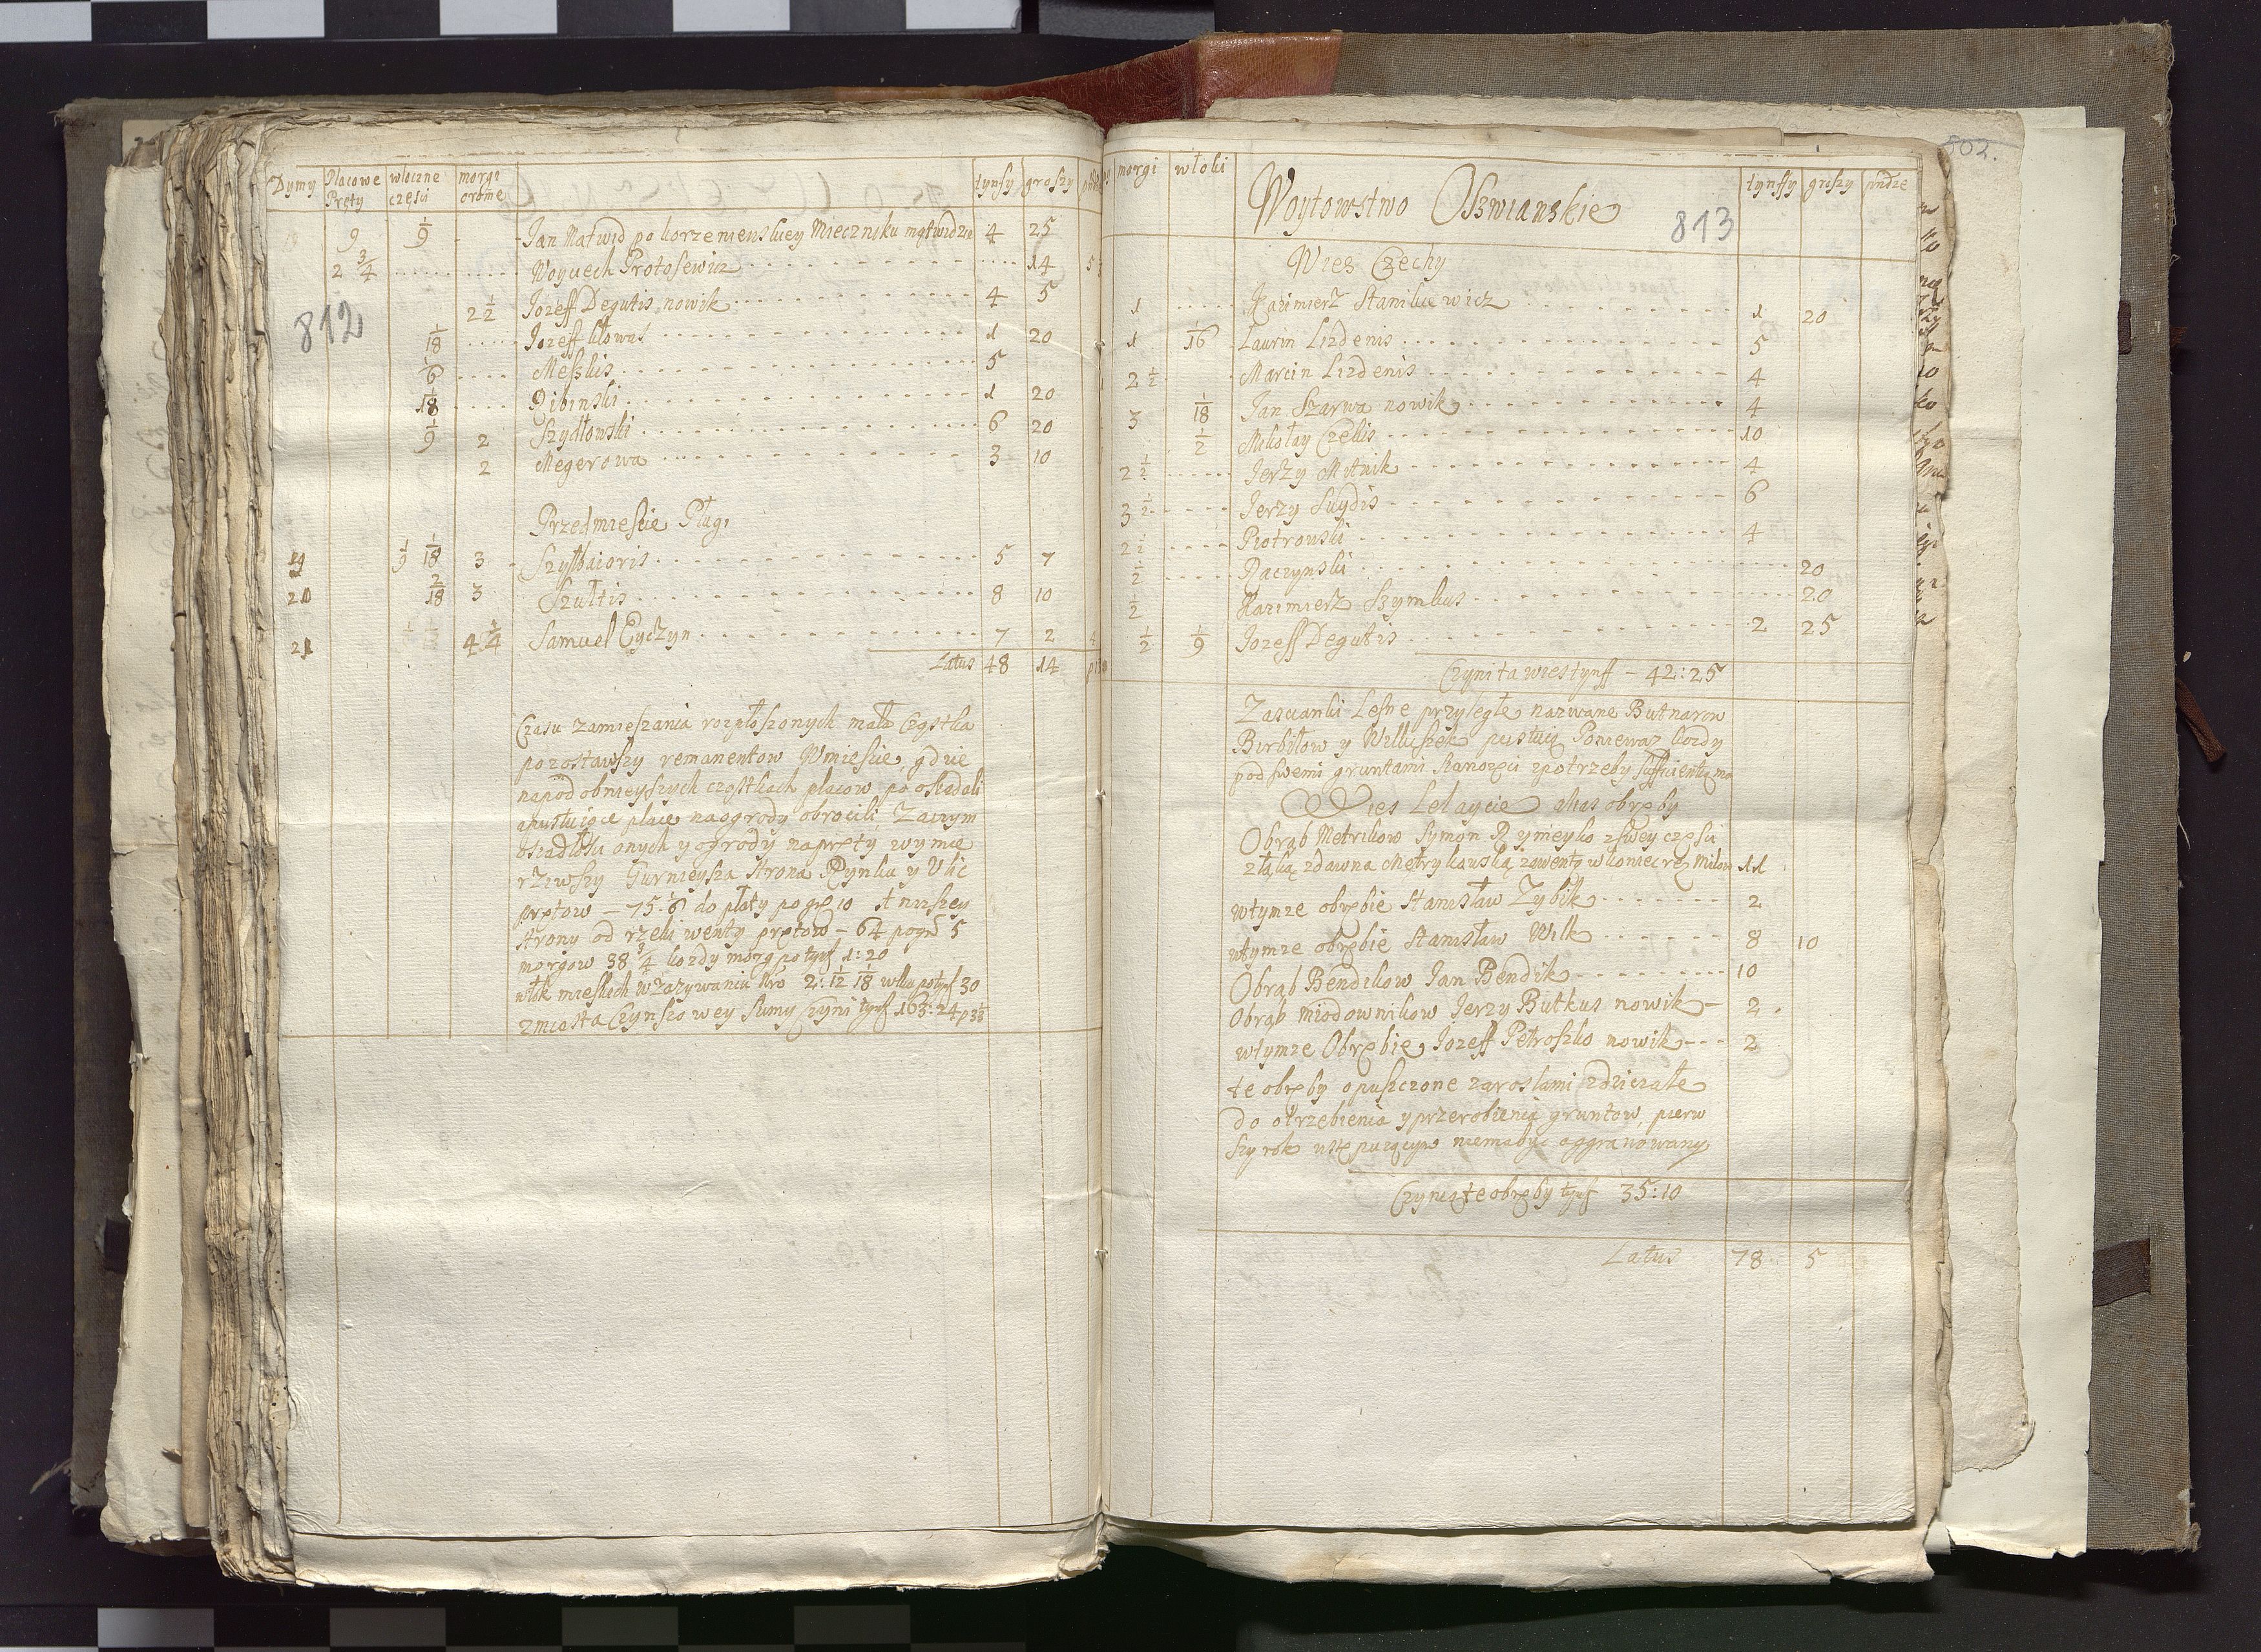 Dymy Placowe Pręty włoczne części morgi orome tynfy groszy
9 1/9 Jan Matwid po korzenienskiey Mieczniku matwidzie 4 25
2 3/4 Woyciech Protosewicz 14 5
812
2 1/2 Jozeff Degutis nowik 4 5
1/18 Jozeff 1 20
1/6 Meszlis 5
1/18 Dibinski 1 20
1/9 2 Szydłowski 6 20
2 Megerowa 3 10
Przedmieście Pługi
19 1/9 1/18 3 Szylbaioris 5 7
20 2/18 3 Szultis 8 10
21 4 1/4 Samuel Eyczyn 7 2 4
Latus 48 14
Czasu zamieszania rozpłoszonych mała Cząstka
pozostawszy remanentow W mieście, gdzie
napodobnieyszych cząstkach placow po osiadali
apustuiące place na ogrody obrocili, Zaczym
osiadłości onych y ogrody na pręty wymie
rzywszy Gurnieysza strona Rynku y Ulic
prętow – 75. 1/6 do płaty po gr 10 A niższey
strony od rzeki wenty prętow – 64 po gr 5
morgow 38 3/4 każdy morg po tynf 1:20
włok mieskich w zazywaniu Nro 2. 1/2 1/18 włka po tynf 30
z miasta Czynszowey sumy Czyni tynf 163: 24
morgi włoki Woytowstwo Oszwianskie tynffy groszy
813
802.
Wieś Czechy
1 Kazimierz Stanikiewicz 1 20
1 1/16 Laurin Lizdenis 5
2 1/2 Marcin Lizdenis 4
3 1/18 Jan Szarwa nowik 4
1/2 Mikołay Czelis 10
2 1/2 Jerzy Mitnik 4
3 1/2 Jerzy Sugdis 6
2 1/2 Piotrowski 4
1/2 Raczynski 20
1/2 Kazimierz Szymkus 20
1/2 1/9 Jozeff Degutis 2 25
Czyni ta wies tynff – 42: 25
Zascianki Leśne przyległe nazwane Butnarow
Birbiłow y Willuszek pustuią Poniewaz kozdy
pod swemi gruntami Sianozęci z potrzeby sufficientią ma
Wies Lelaycie alias obręby
Obrąb Metrikow Symon Rymieyko z swey części
z łąką zdawna Metrykowską zawentą w koniec rez Milow 11
w tymze obrębie Stanisław Zybik 2
w tymze obrębie Stanisław Wilk 8 10
Obrąb Bendikow Jan Bendik 10
Obrąb Miodownikow Jerzy Butkus nowik – 2
w tymze Obrębie Jozeff Petroszko nowik 2
te obręby opuszczone zaroslami zdziczałe
do otrzebienia y przerobienia gruntow, pierw
szy rok niema być aggrawowany
Czynią te obręby tynf 35:10
Latus 78 5